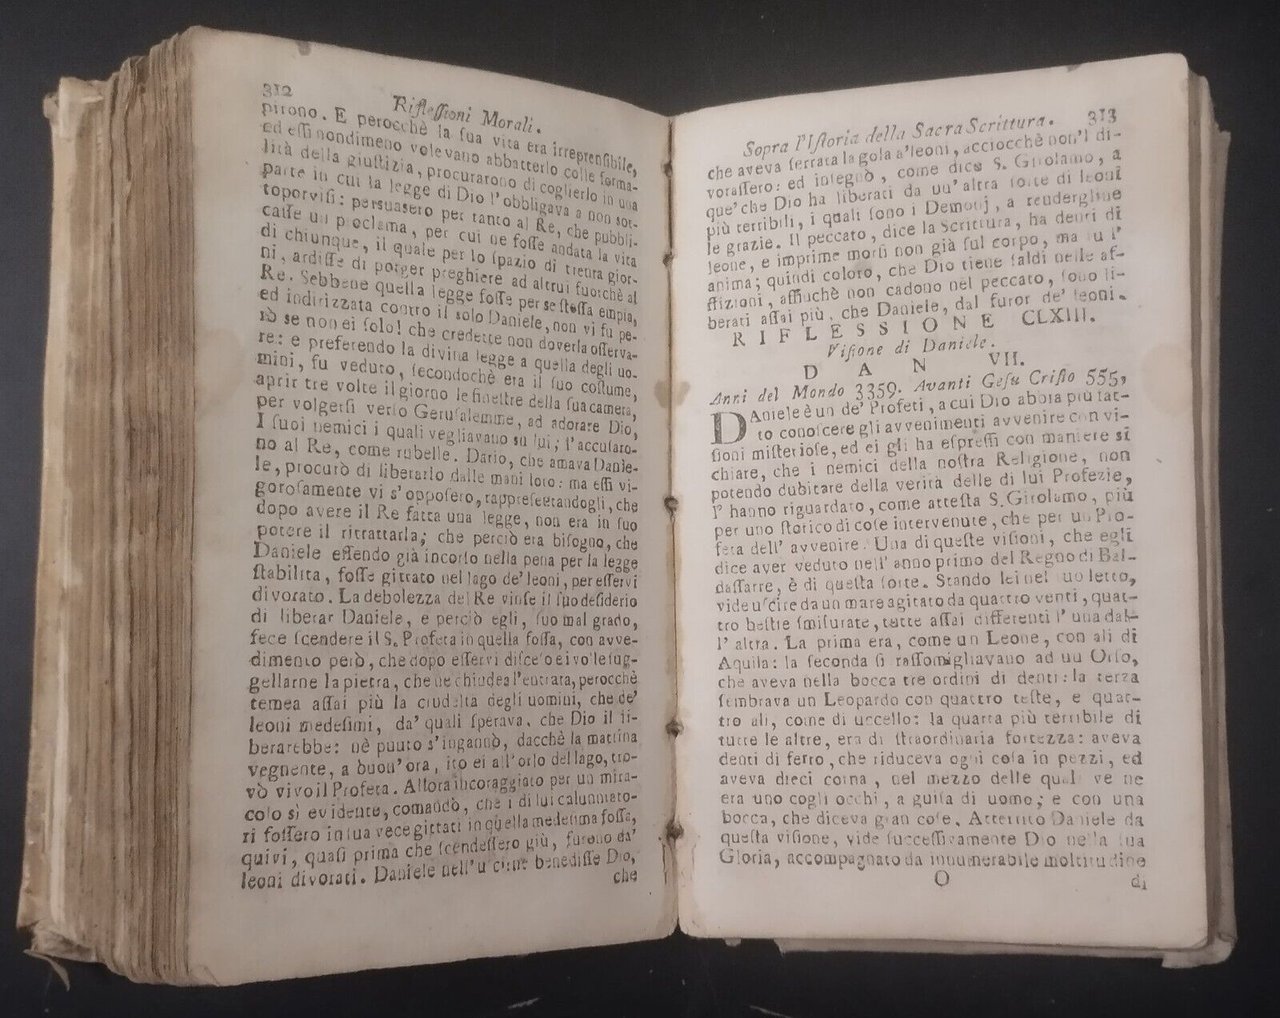 312
Rifleſſioni Morali.
pirono. E perocchè la ſua vita era irreprenſibile,
ed eſſi nondimeno volevano abbatterlo colle forma-
lità della giuſtizia, procurarono di coglierlo in una
parte in cui la legge di Dio l'obbligava a non sot-
toporviſi: perſuaſero per tanto al Re, che pubbli-
caſſe un proclama, per cui ne foſſe andata la vita
di chiunque, il quale per lo ſpazio di trenta gior-
ni, ardiſſe di porger preghiere ad altrui fuorchè al
Re. Sebbene quella legge foſſe per se ſteſſa empia,
ed indirizzata contro il solo Daniele, non vi fu pe-
rò se non ei ſolo! che credette non doverla oſſerva-
re: e preferendo la divina legge a quella degli uo-
mini, fu veduto, ſecondochè era il ſuo coſtume,
aprir tre volte il giorno le fineſtre della ſua camera,
per volgerſi verſo Geruſalemme, ad adorare Dio,
I ſuoi nemici i quali vegliavano su lui; l'accuſaro-
no al Re, come rubelle. Dario, che amava Danie-
le, procurò di liberarlo dalle mani loro: ma eſſi vi-
goroſamente vi s'oppoſero, rappreſeetandogli, che
dopo avere il Re fatta una legge, non era in ſuo
potere il ritrattarla; che perciò era biſogno, che
Daniele eſſendo già incorſo nella pena per la legge
ſtabilita, foſſe gittato nel lago de'leoni, per eſſervi
divorato. La debolezza del Re vinſe il ſuo deſiderio
di liberar Daniele, e perciò egli, ſuo mal grado,
fece ſcendere il S. Profeta in quella foſſa, con avve-
dimento però, che dopo eſſervi diſceſo ei volle ſug-
gellarne la pietra, che ne chiudea l'entrata, perocchè
temea aſſai più la crudeltà degli uomini, che de'
leoni medeſimi, da'quali ſperava, che Dio il li-
berarebbe: nè punto s'ingannò, dacchè la mattina
vegnente, a buon'ora, ito ei all'orlo del lago, tro-
vò vivo il Profeta. Allora incoraggiato per un mira-
colo sì evidente, comandò, che i di lui calunniato-
ri foſſero in ſua vece gittati in quella medeſima foſſa,
quivi, quaſi prima che ſcendeſſero giù, furono da'
leoni divorati. Daniele nell'uſcirne benediſſe Dio,
che
Sopra l'Iſtoria della Sacra Scrittura. 313
che aveva ſerrata la gola a'leoni, acciocchè non'l di-
voraſſero: ed inſegnò, come dice S. Girolamo, a
que'che Dio ha liberati da un'altra ſorte di leoni
più terribili, i quali ſono i Demonj, a rendergline
le grazie. Il peccato, dice la Scrittura, ha denti di
leone, e imprime morſi non già ſul corpo, ma su l'
anima; quindi coloro, che Dio tiene ſaldi nelle af-
flizioni, affinchè non cadono nel peccato, ſono li-
berati aſſai più, che Daniele, dal furor de' leoni.
RIFLESSIONE CLXIII.
Viſione di Daniele.
DAN VII.
Anni del Mondo 3359. Avanti Geſu Criſto 555,
DAniele è un de' Profeti, a cui Dio abbia più fat-
to conoſcere gli avvenimenti avvenire con vi-
ſioni miſterioſe, ed ei gli ha eſpreſſi con maniere sì
chiare, che i nemici della noſtra Religione, non
potendo dubitare della verità delle di lui Profezie,
l' hanno riguardato, come atteſta S. Girolamo, più
per uno ſtorico di coſe intervenute, che per un Pro-
feta dell' avvenire. Una di queſte viſioni, che egli
dice aver veduto nell' anno primo del Regno di Bal-
daſſarre, è di queſta ſorte. Stando lei nel suo letto,
vide uſcire da un mare agitato da quattro venti, quat-
tro beſtie ſmiſurate, tutte aſſai differenti l' una dal-
l' altra. La prima era, come un Leone, con ali di
Aquila: la ſeconda ſi raſſomigliavano ad un Orſo,
che aveva nella bocca tre ordini di denti: la terza
ſembrava un Leopardo con quattro teſte, e quat-
tro ali, come di uccello: la quarta più terribile di
tutte le altre, era di ſtraordinaria fortezza: aveva
denti di ferro, che riduceva ogni coſa in pezzi, ed
aveva dieci corna, nel mezzo delle quali ve ne
era uno cogli occhi, a guiſa di uomo; e con una
bocca, che diceva gran coſe. Atterrito Daniele da
queſta viſione, vide ſucceſſivamente Dio nella ſua
Gloria, accompagnato da innumerabile moltitudine
O
di